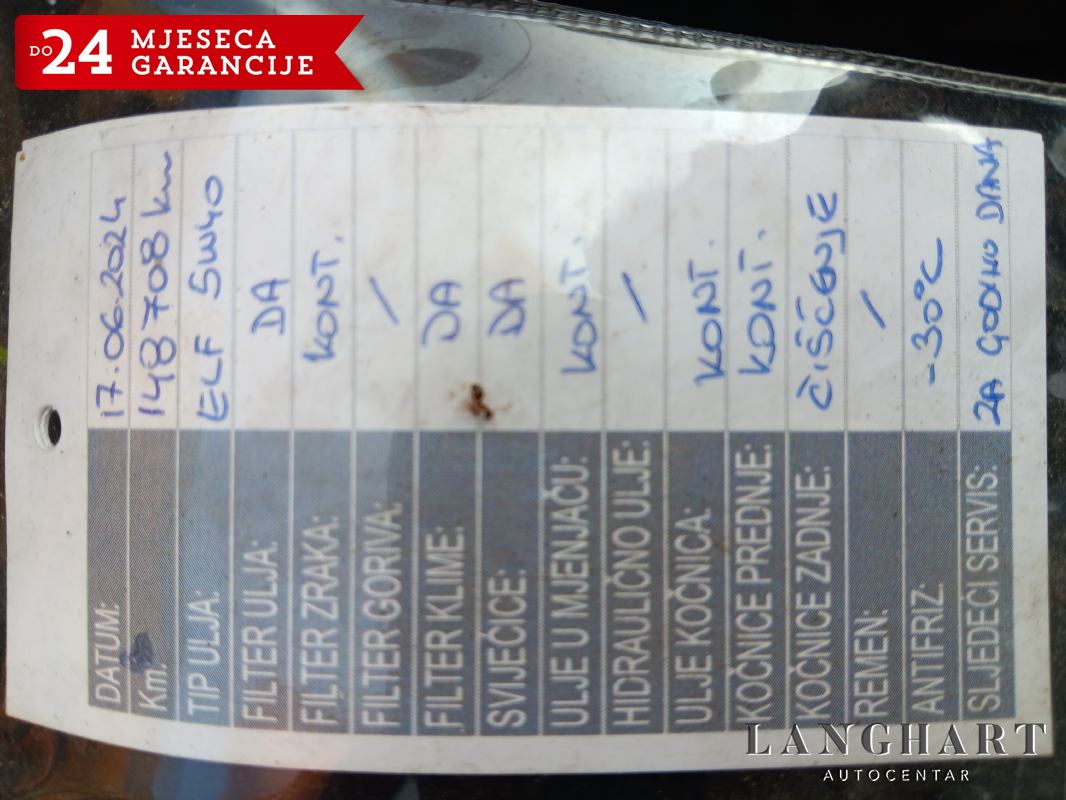 DO 24 MJESECA
GARANCIJE
DATUM: 17.06.2024
Km. 148 708 km
TIP ULJA: ELF 5W40
FILTER ULJA: DA
FILTER ZRAKA: KONT.
FILTER GORIVA: /
FILTER KLIME: DA
SVJEĆICE: DA
ULJE U MJENJAČU: KONT.
HIDRAULIČNO ULJE: /
ULJE KOČNICA: KONT.
KOČNICE PREDNJE: KONT.
KOČNICE ZADNJE: ČIŠĆENJE
REMEN: /
ANTIFRIZ: -30°C
SLJEDEĆI SERVIS: ZA GODINU DANA
LANGHART
AUTOCENTAR